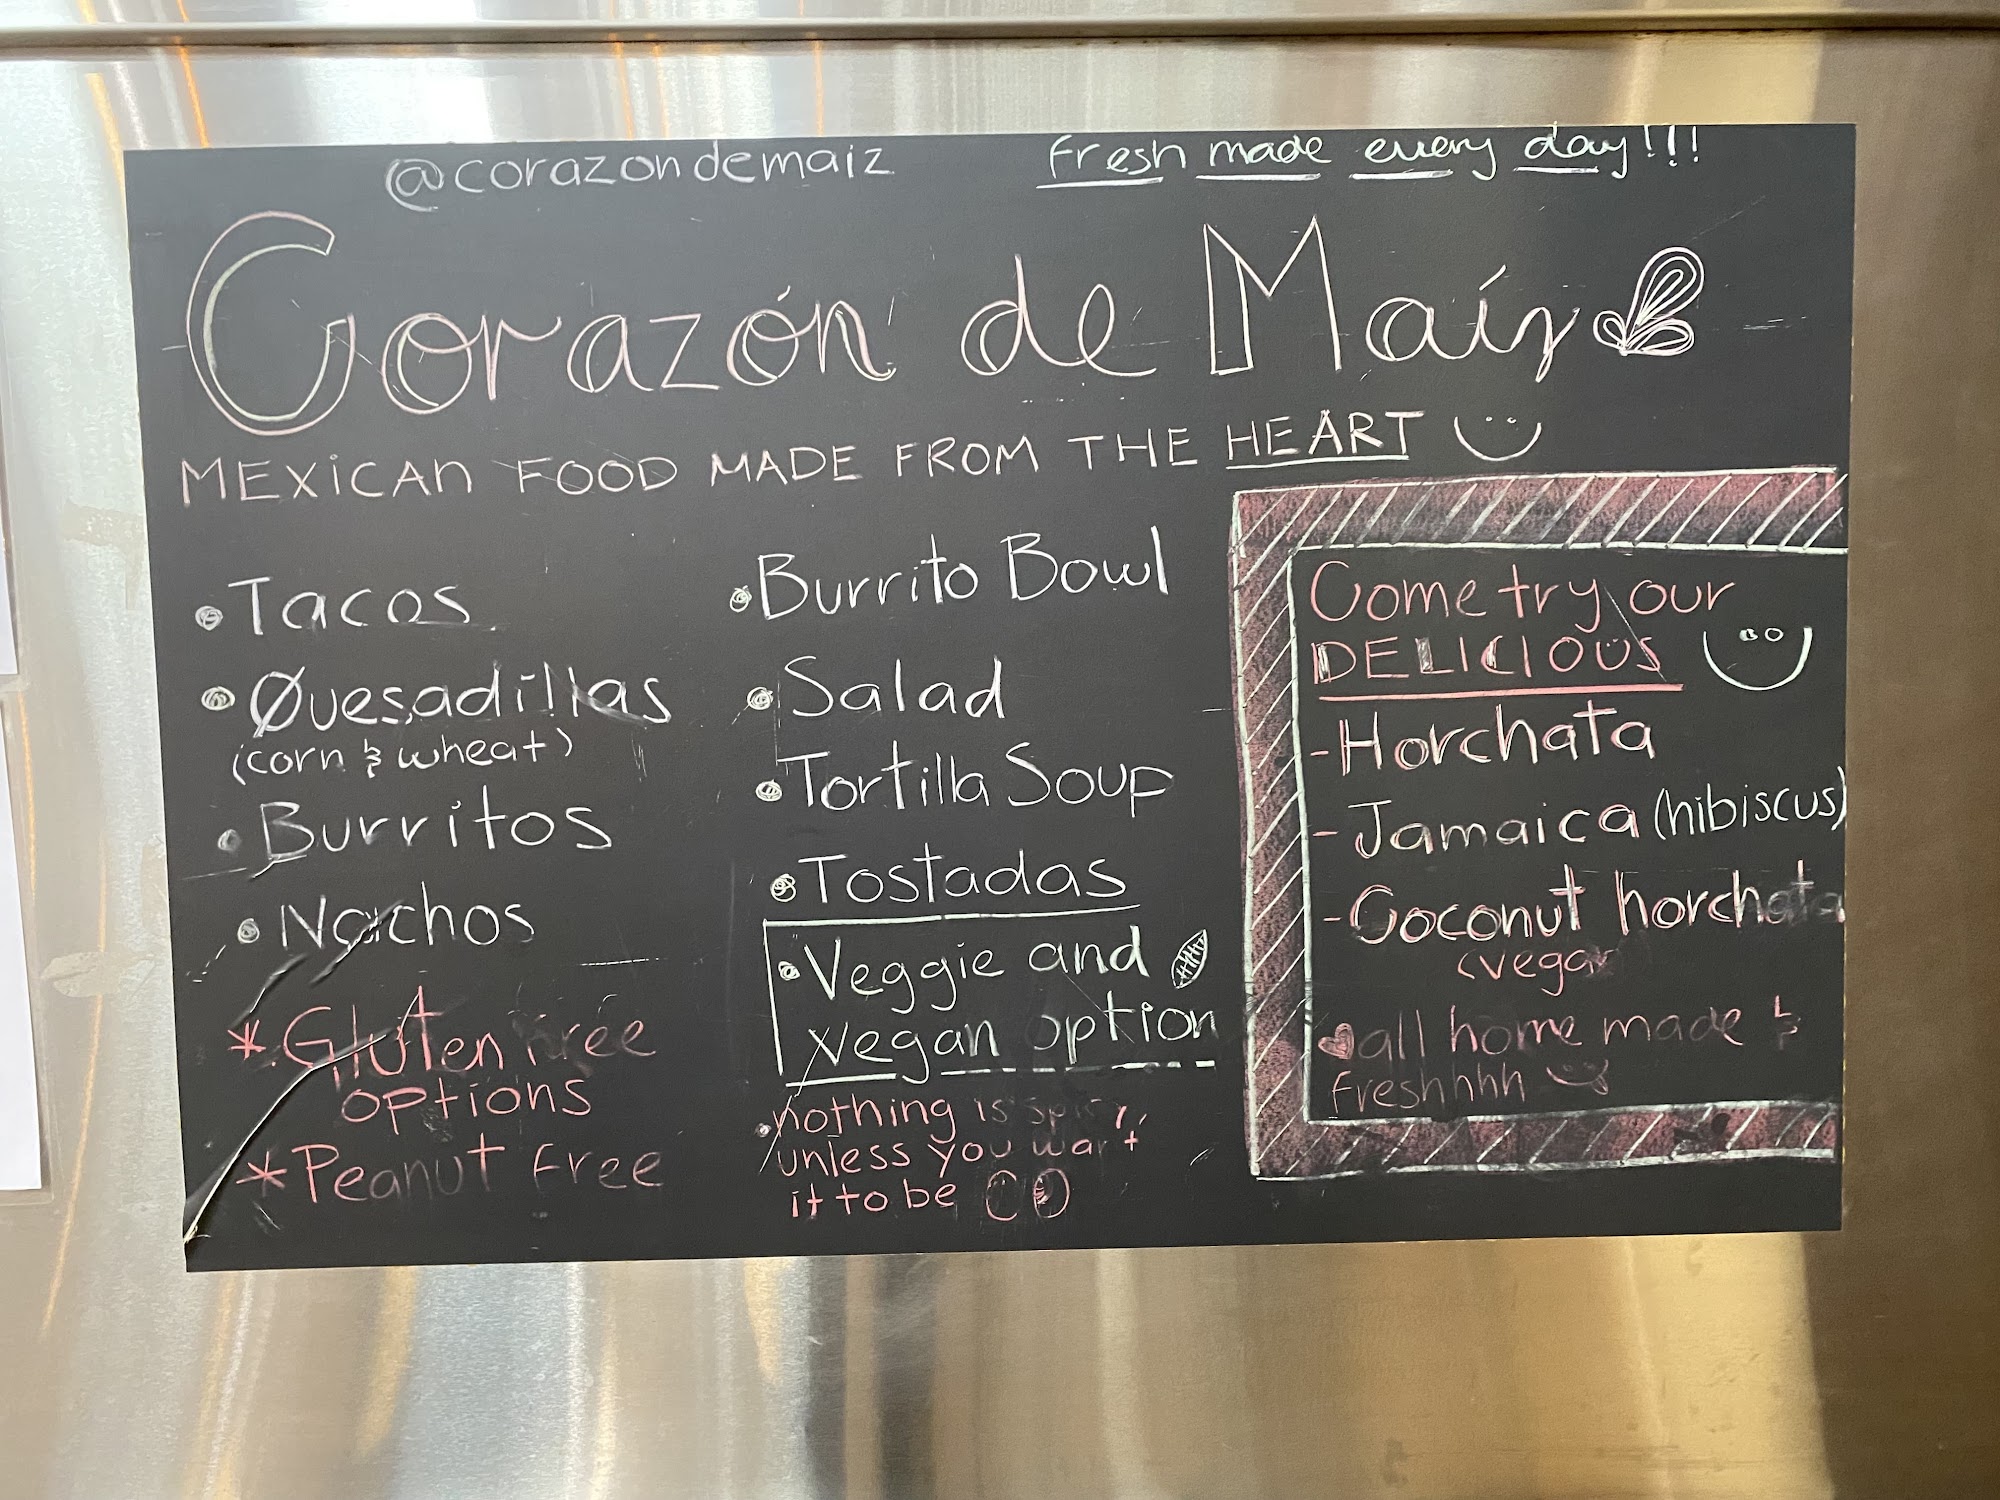 @corazondemaiz
Fresh made every day!!!
Corazón de Maíz
MEXICAN FOOD MADE FROM THE HEART
• Tacos
• Quesadillas
(corn & wheat)
• Burritos
• Nachos
* Gluten Free
options
* Peanut Free
• Burrito Bowl
• Salad
• Tortilla Soup
• Tostadas
• Veggie and
Vegan option
• nothing is spicy,
unless you want
it to be
Come try our
DELICIOUS
- Horchata
- Jamaica (hibiscus)
- Coconut horchata
(vegan
all home made &
freshhhh